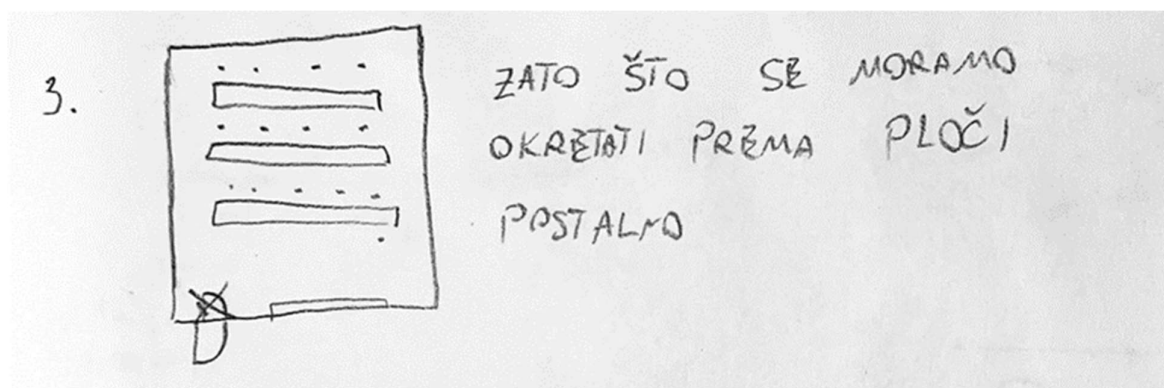 3.
ZATO ŠTO SE MORAMO
OKRETATI PREMA PLOČI
POSTALNO